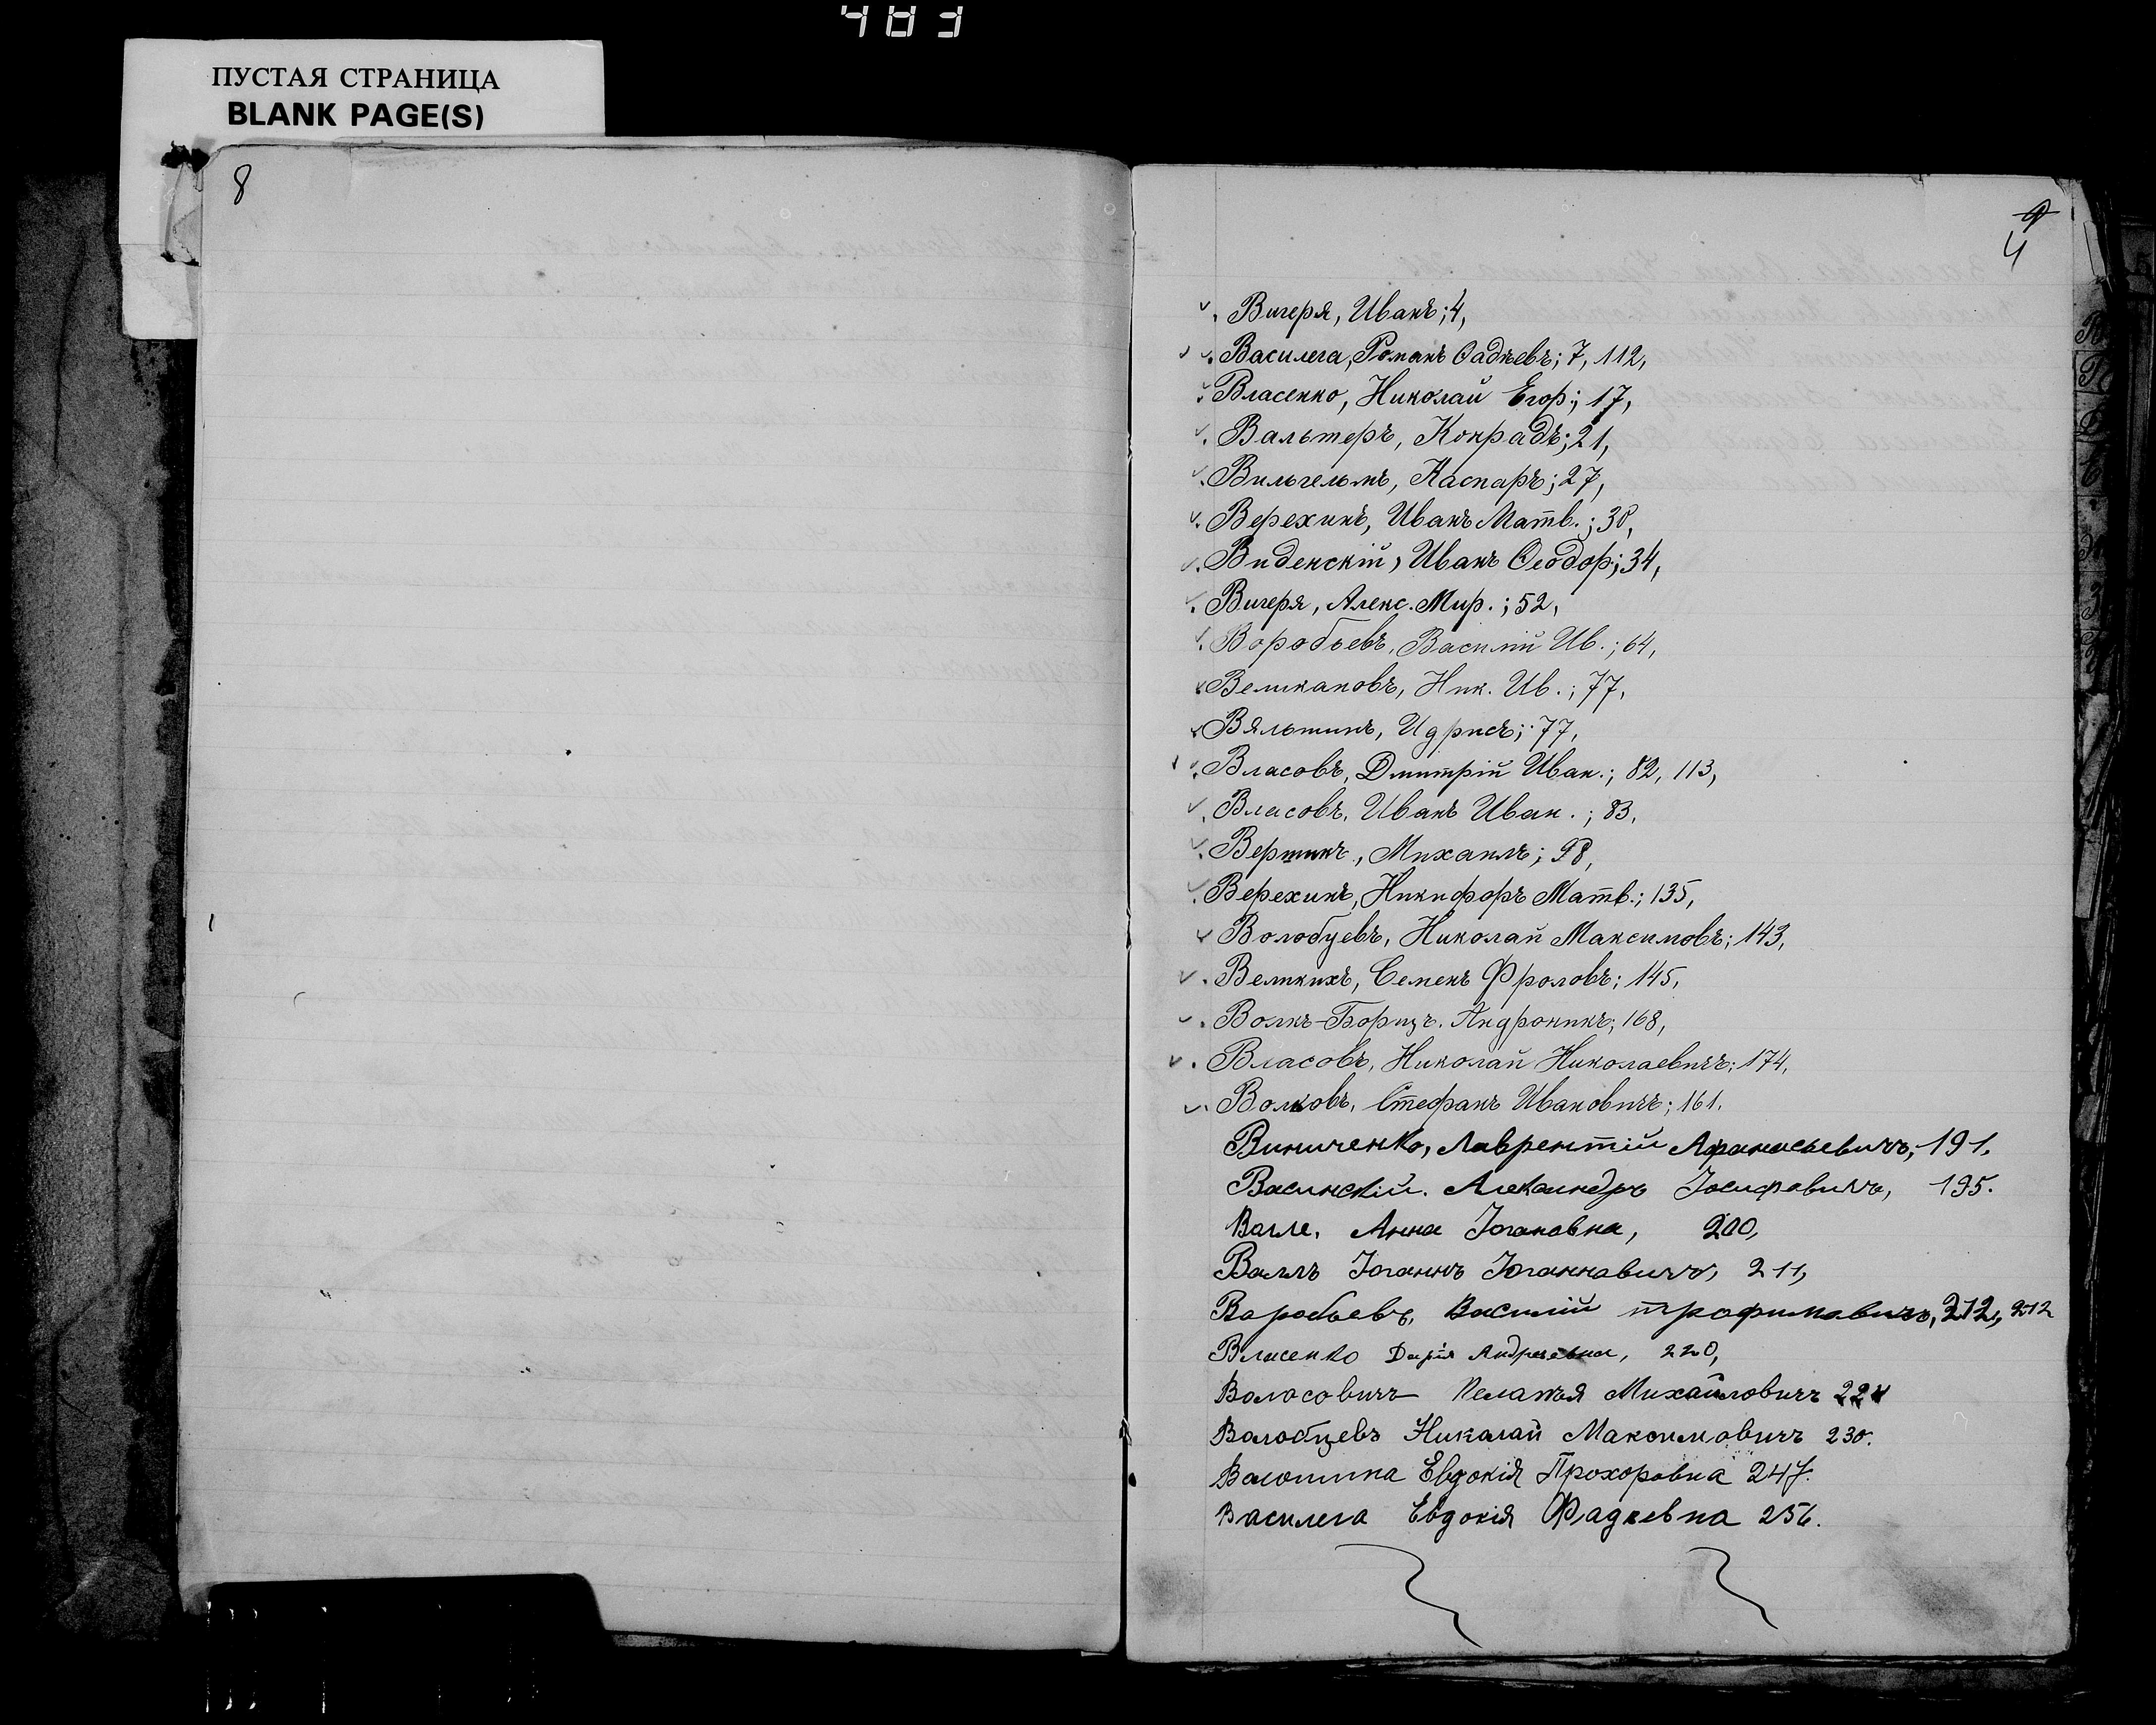 483
ПУСТАЯ СТРАНИЦА
BLANK PAGE(S)
8
9
4
Вигеря, Иванъ; 4,
Василега, Романъ Ѳадѣевъ; 7, 112,
Власенко, Николай Егор.; 17,
Вальтеръ, Конрадъ; 21,
Вильгельмъ, Каспаръ; 27,
Верехинъ, Иванъ Матв.; 30,
Виденскій, Иванъ Ѳеодор; 34,
Вигеря, Алекс. Мир.; 52,
Воробьевъ, Василій Ив.; 64,
Великановъ, Ник. Ив.; 77,
Вяльшинъ, Идрисъ; 77,
Власовъ, Дмитрій Иван.; 82, 113,
Власовъ, Иванъ Иван.; 83,
Михаилъ; 98,
Верехинъ, Никифоръ Матв.; 135,
Волобуевъ, Николай Максимовъ; 143,
Великихъ, Семенъ Фроловъ; 145,
Волкъ-Борицъ. Андроникъ; 168,
Власовъ, Николай Николаевичъ; 174,
Волковъ, Стефанъ Ивановичъ; 161.
Виниченко, Лаврентій Афанасьевичъ, 191.
Васинскій. Александръ Іосифовичъ, 195.
Анна Іогановна, 200,
Валлъ Іоганнъ Іоганновичъ, 211,
Воробьевъ, Василій трофимовичъ, 212, 212
Власенко Дарія Андреевна, 220,
Воласовичъ Пелагѣя Михайловичъ
Волобуевъ Николай Максимовичъ 230.
Волошина Евдокія Прохоровна 247.
Василега Евдокія Фадѣевна 256.